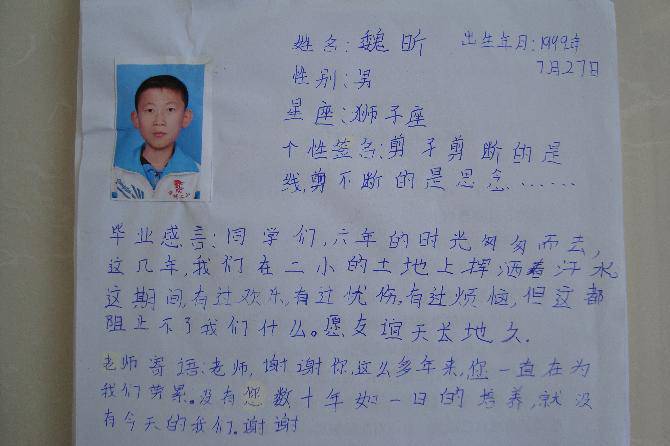 姓名:魏昕 出生年月:1999年
7月27日
性别:男
星座:狮子座
个性签名:剪子剪断的是
线,剪不断的是思念……
毕业感言:同学们,六年的时光匆匆而去,
这几年,我们在二小的土地上挥洒着汗水
这期间,有过欢乐,有过忧伤,有过烦恼,但这都
阻止不了我们什么。愿友谊天长地久.
老师寄语:老师,谢谢你,这么多年来,您一直在为
我们劳累。没有您数十年如一日的培养,就没
有今天的我们.谢谢